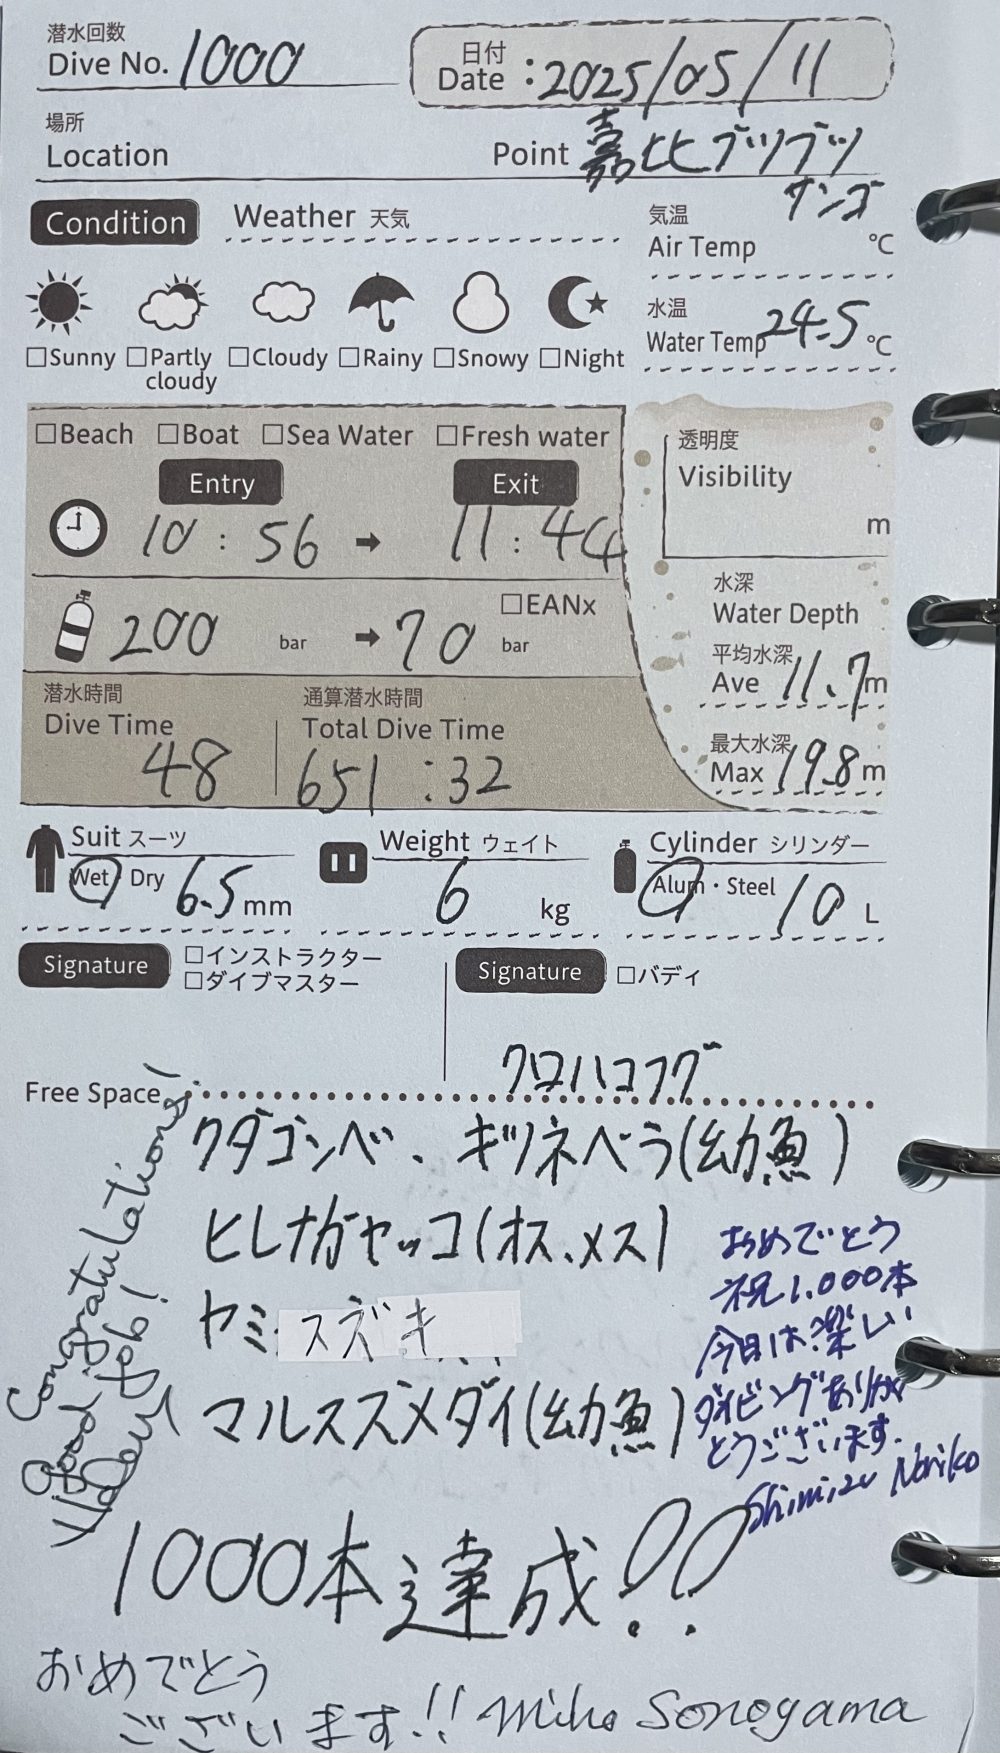 潜水回数
Dive No. 1000
日付
Date : 2025/05/11
場所
Location
Point 嘉比ブツブツ
サンゴ
Condition
Weather 天気
気温
Air Temp ℃
水温
Water Temp 24.5 ℃
□Sunny □Partly cloudy □Cloudy □Rainy □Snowy □Night
□Beach □Boat □Sea Water □Fresh water
Entry Exit
10 : 56 → 11 : 44
透明度
Visibility
m
□EANx
200 bar → 70 bar
水深
Water Depth
平均水深
Ave 11.7 m
最大水深
Max 19.8 m
潜水時間
Dive Time
48
通算潜水時間
Total Dive Time
651 : 32
Suit スーツ
Wet / Dry 6.5 mm
Weight ウェイト
6 kg
Cylinder シリンダー
Alum・Steel 10 L
Signature
□インストラクター
□ダイブマスター
Signature □バディ
Free Space
クロハコフグ
クダゴンベ、キツネベラ(幼魚)
ヒレナガヤッコ(オス、メス)
ヤミスズキ
マルスズメダイ(幼魚)
Congratulations!
Good job!
おめでとう
祝1,000本
今日は楽しい
ダイビングありが
とうございます.
Shimizu Noriko
1000本達成!!
おめでとう
ございます!! Miho Sonoyama